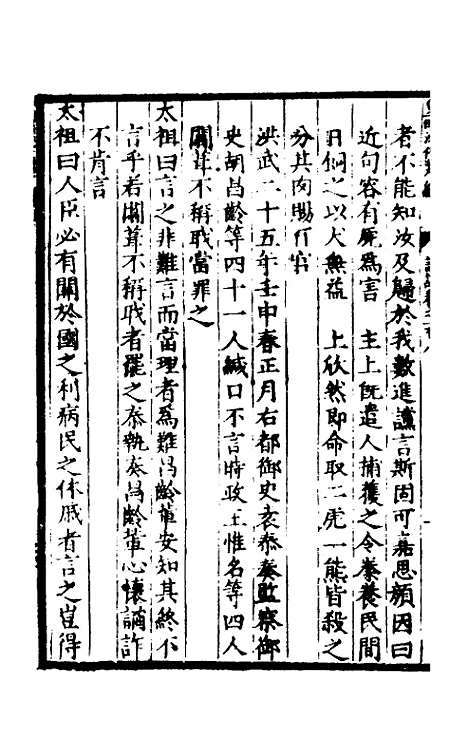 者不能知汝及歸於我數進讜言斯固可嘉思顏因曰
近句容有虎為害　主上既遣人捕獲之令豢養民間
日飼之以犬無益　上欣然即命取二虎一熊皆殺之
分其肉賜百官
洪武二十五年壬申春正月右都御史袁泰奏監察御
史胡昌齡等四十一人緘口不言時政王惟名等四人
闒茸不稱職當罪之
太祖曰言之非難言而當理者為難昌齡輩安知其終不
言乎若闒茸不稱職者罷之泰執奏昌齡輩心懷譎詐
不肯言
太祖曰人臣必有關於國之利病民之休戚者言之豈得